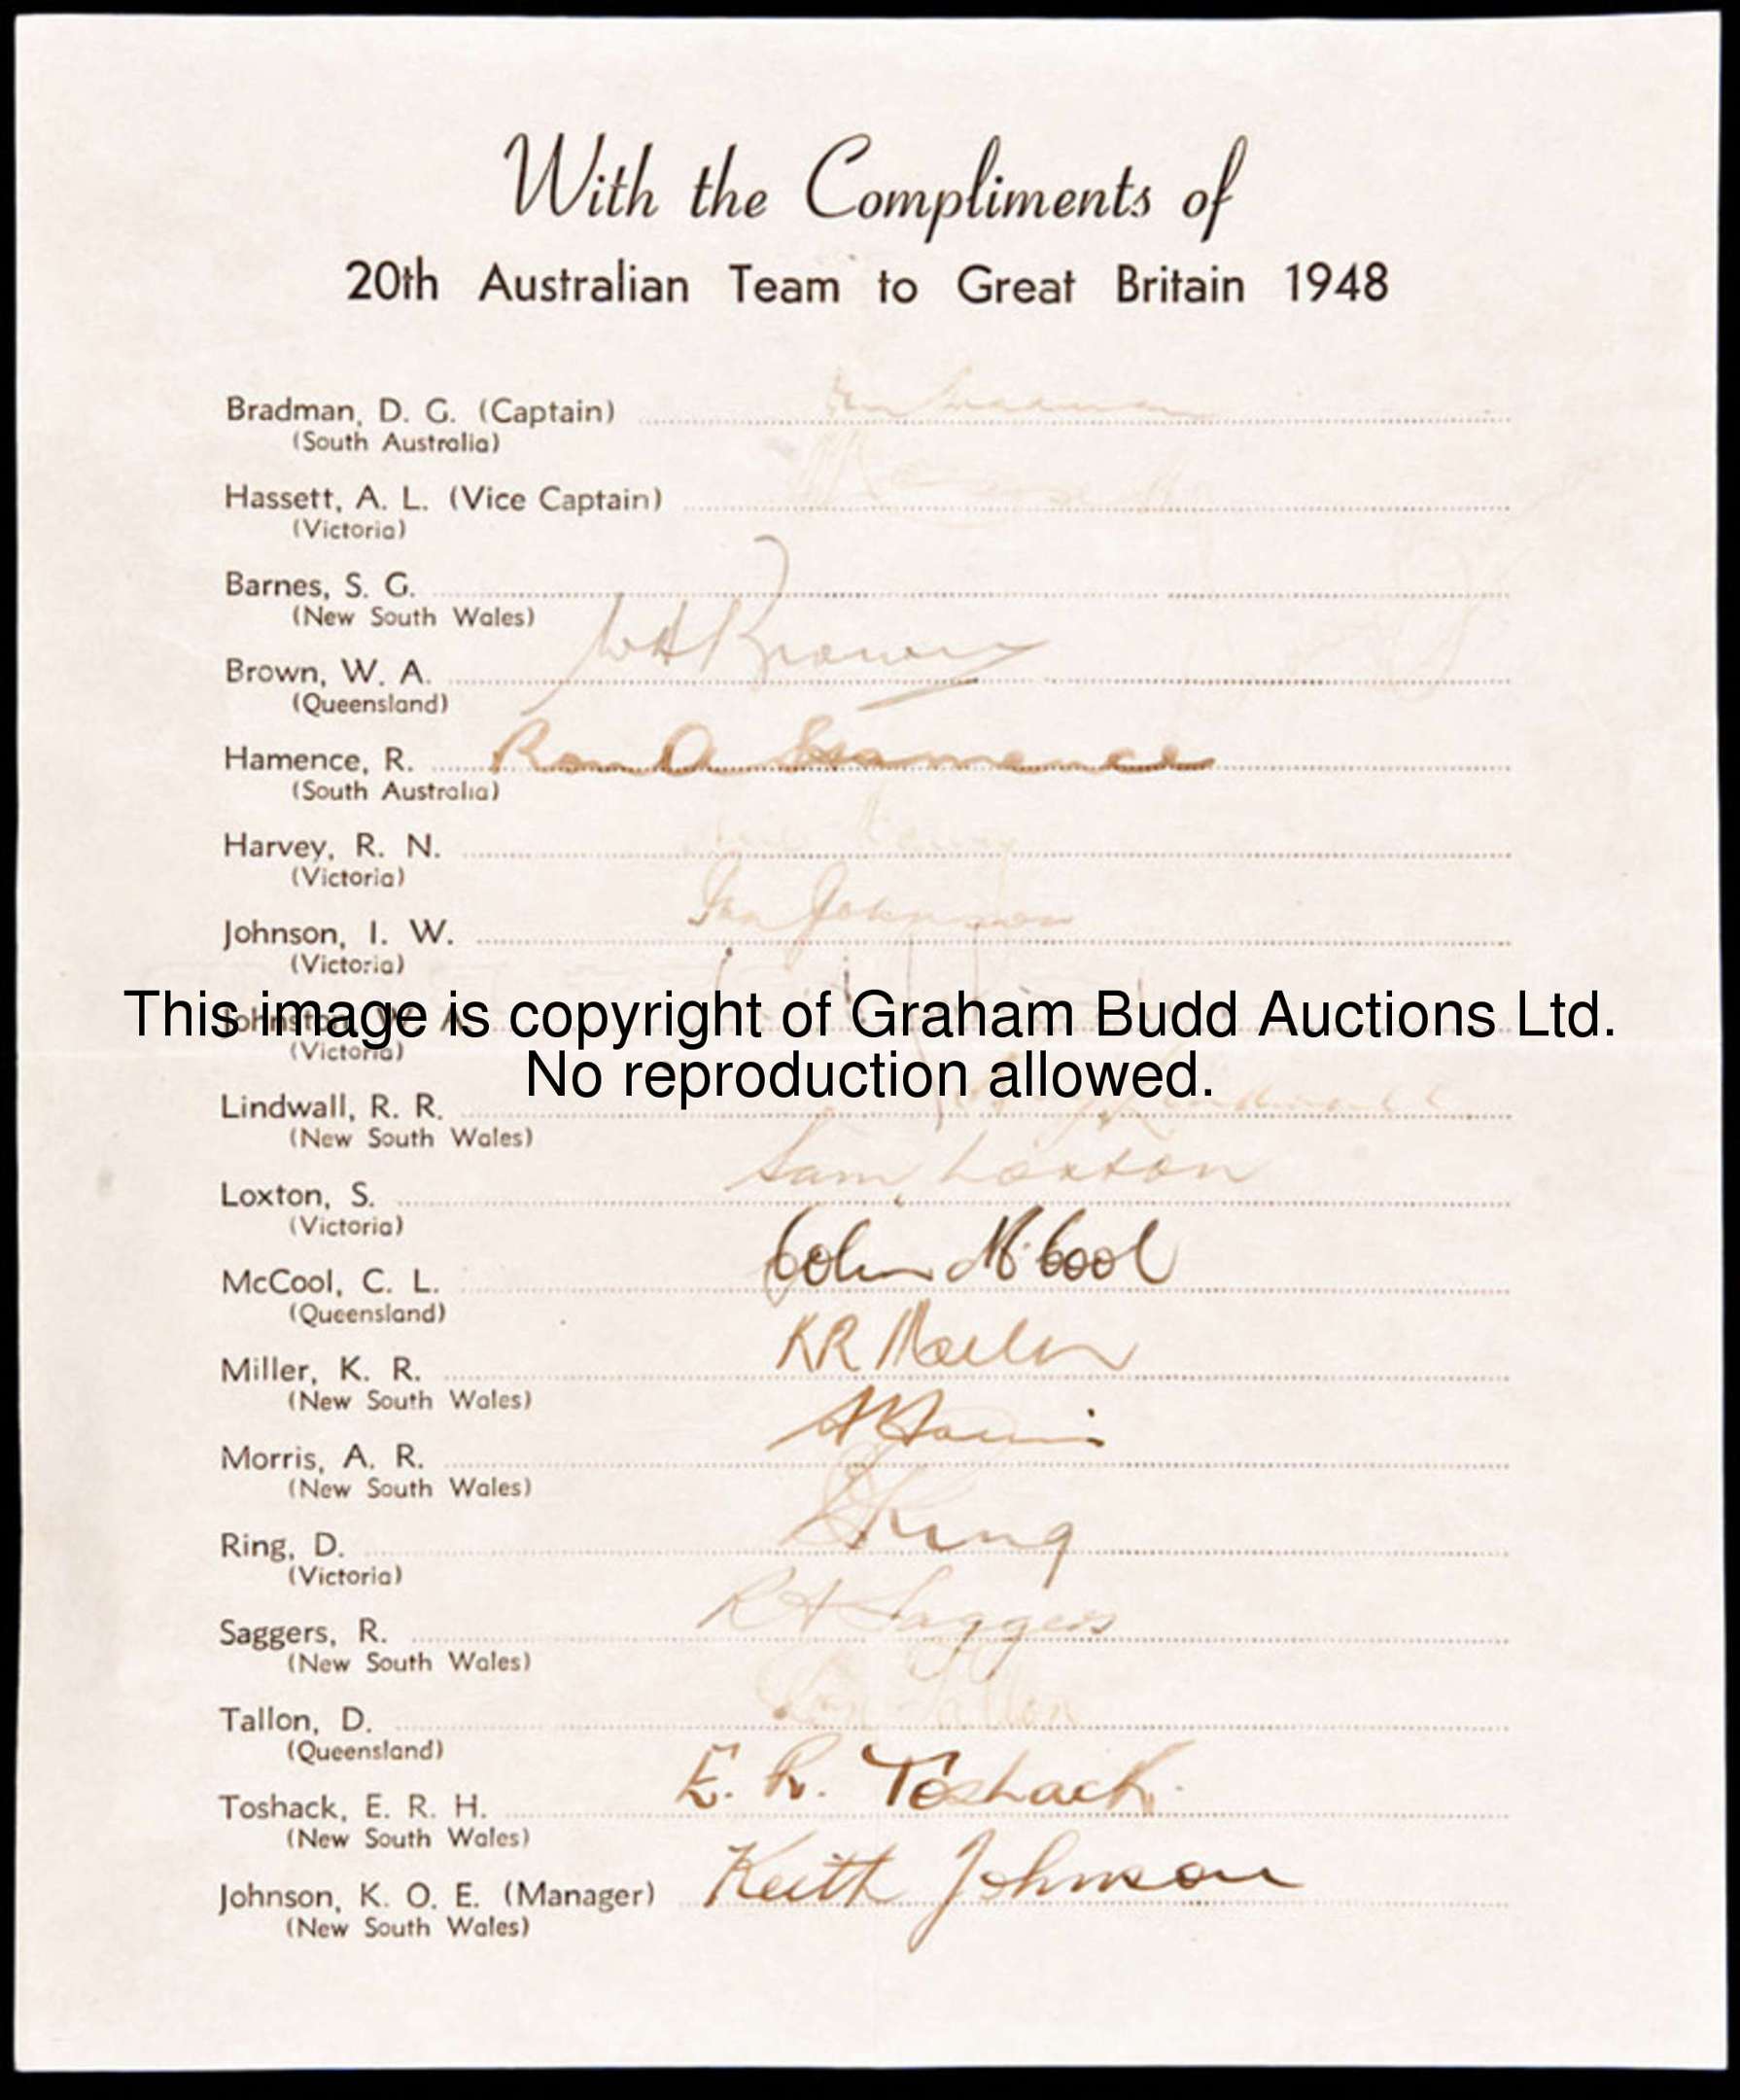 With the Compliments of
20th Australian Team to Great Britain 1948
Bradman, D. G. (Captain)
(South Australia)
Hassett, A. L. (Vice Captain)
(Victoria)
Barnes, S. G.
(New South Wales)
Brown, W. A. WABrown
(Queensland)
Hamence, R. Ron A Hamence
(South Australia)
Harvey, R. N.
(Victoria)
Johnson, I. W. Ian Johnson
(Victoria)
This image is copyright of Graham Budd Auctions Ltd.
Johnston, W. A.
(Victoria)
No reproduction allowed.
Lindwall, R. R.
(New South Wales)
Loxton, S. Sam Loxton
(Victoria)
McCool, C. L. Colin McCool
(Queensland)
Miller, K. R. KR Miller
(New South Wales)
Morris, A. R. A Morris
(New South Wales)
Ring, D. D Ring
(Victoria)
Saggers, R. RA Saggers
(New South Wales)
Tallon, D. Don Tallon
(Queensland)
Toshack, E. R. H. E. R. Toshack.
(New South Wales)
Johnson, K. O. E. (Manager) Keith Johnson
(New South Wales)